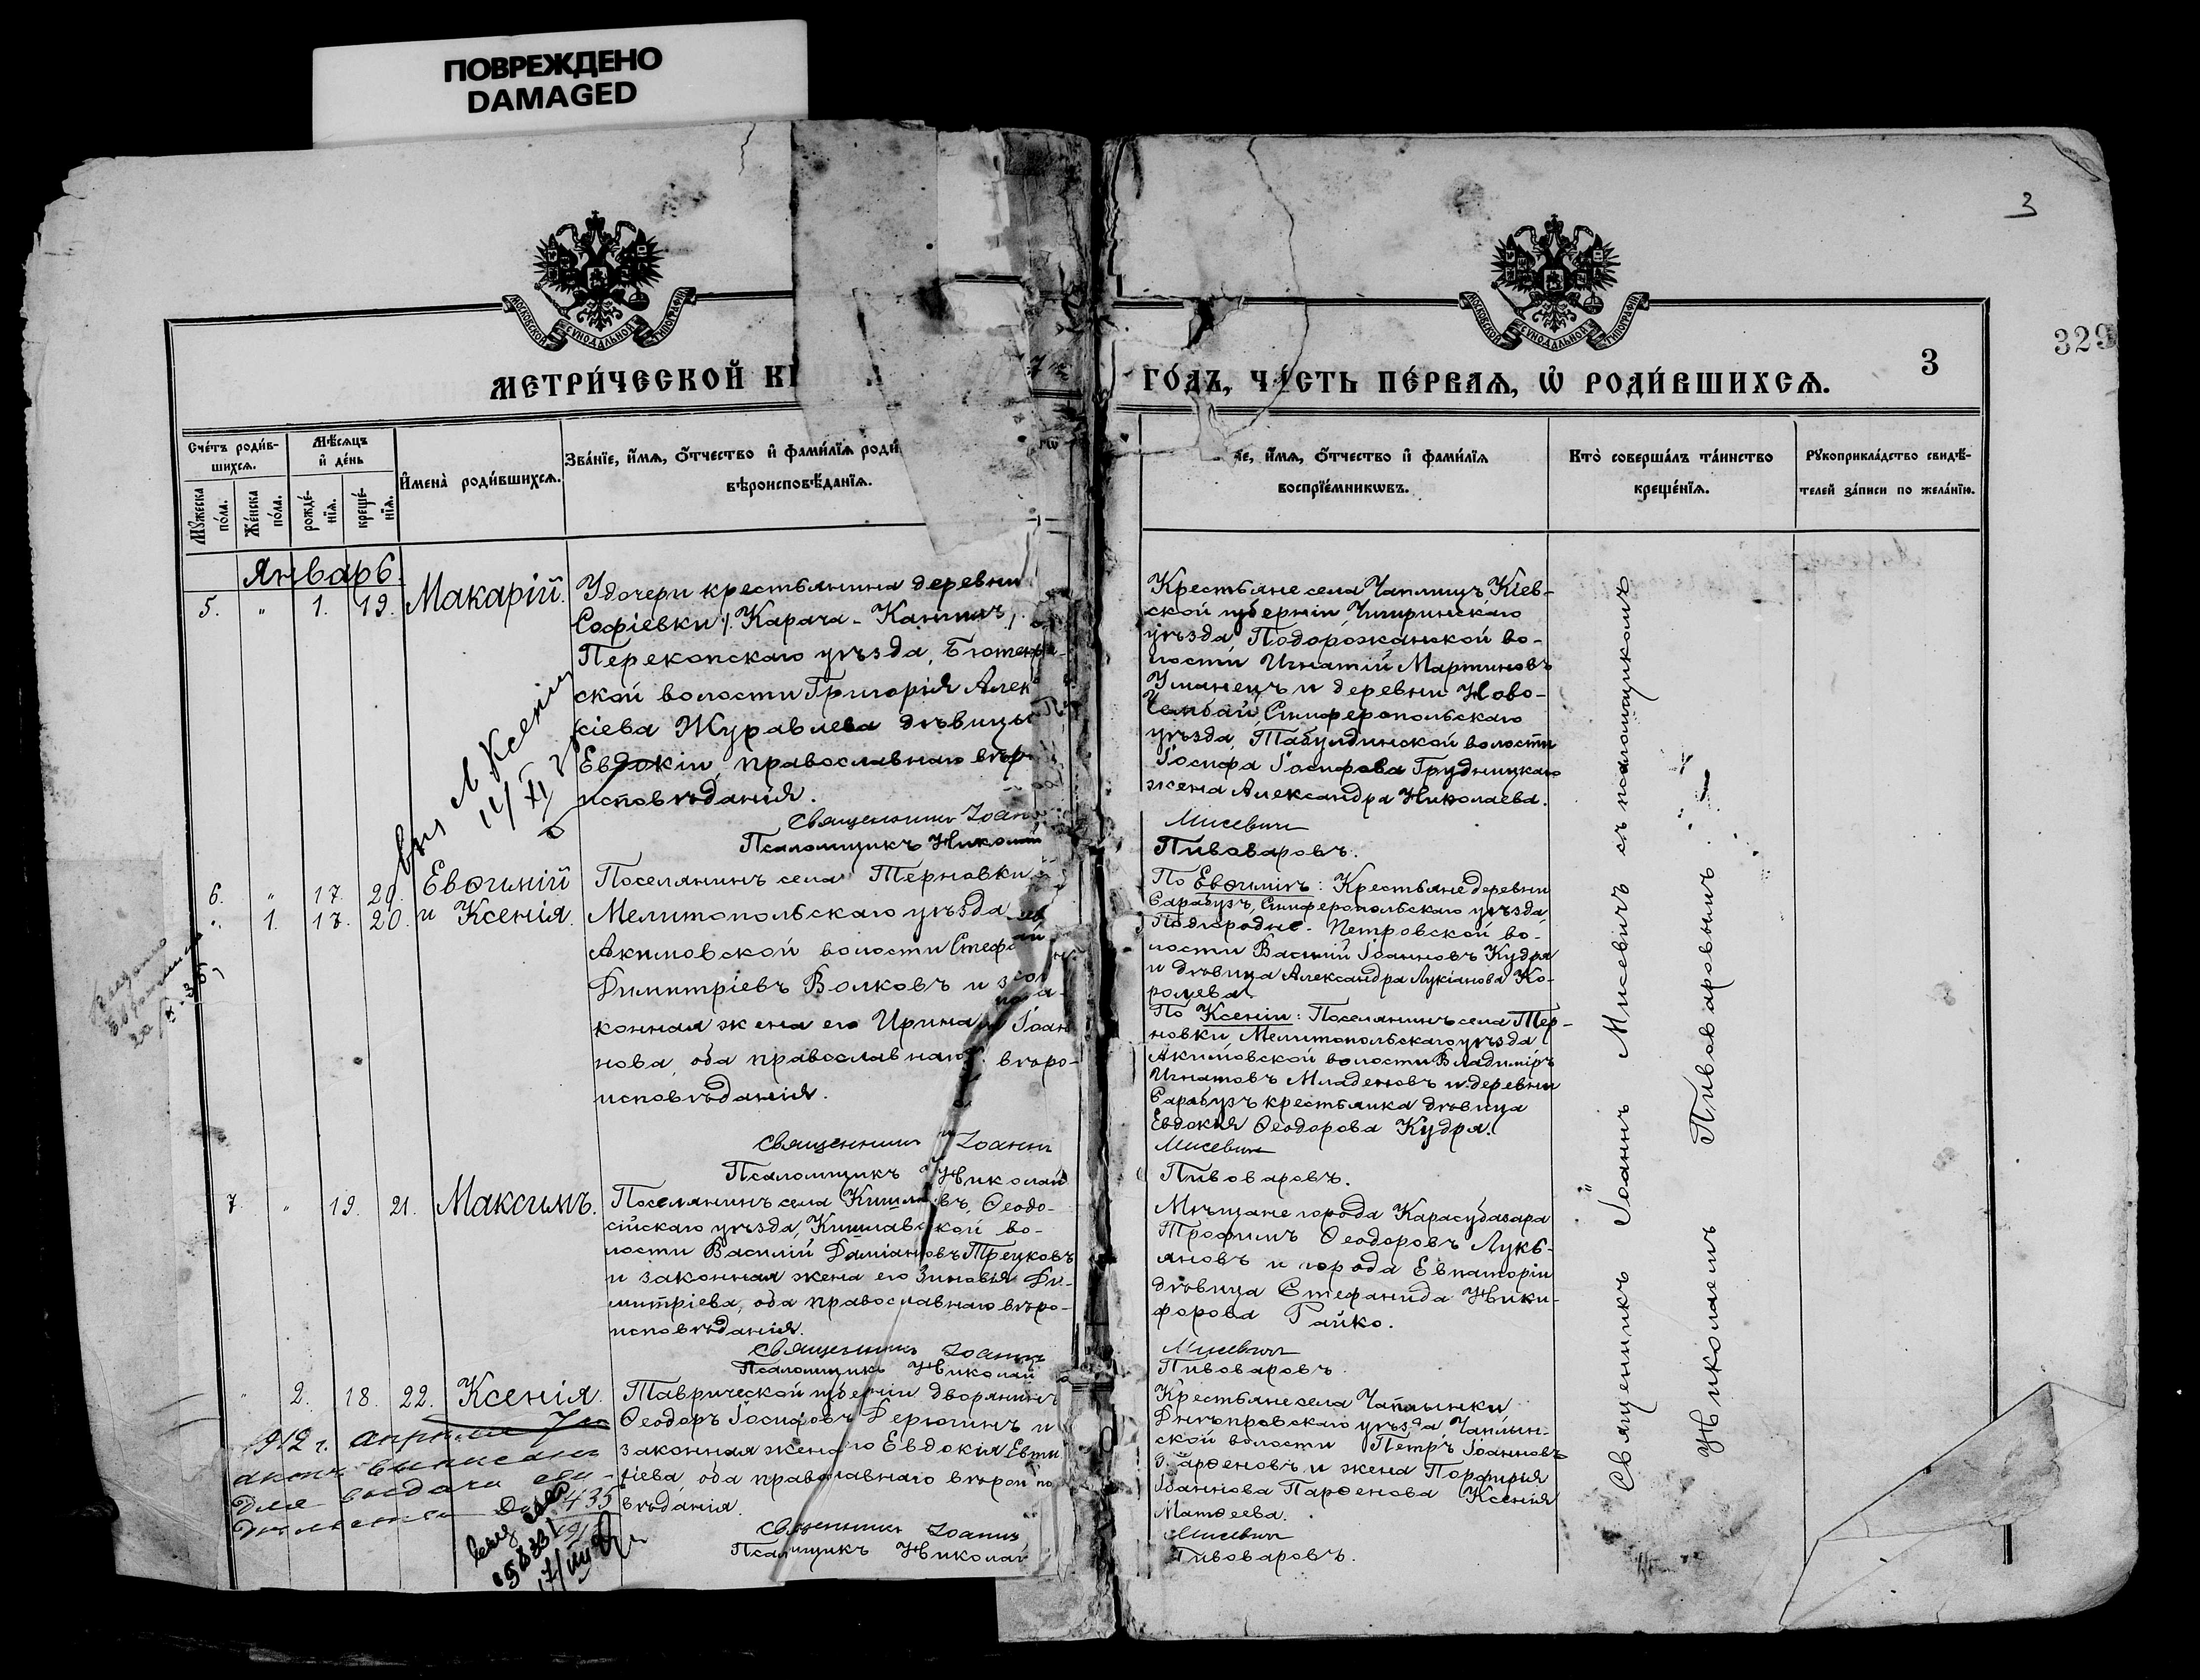 ПОВРЕЖДЕНО
DAMAGED
3
329
3
МОСКОВСКОЙ СУНОДАЛЬНОЙ ТИПОГРАФІИ
МОСКОВСКОЙ СУНОДАЛЬНОЙ ТИПОГРАФІИ
МЕТРИ́ЧЕСКОЙ
ГО́ДЪ, ЧА́СТЬ ПЕ́РВАѦ, Ѡ҆ РОДИ́ВШИХСѦ.
Сче́тъ роди́в-
шихсѧ.
Мѣ́сѧцъ
и҆ де́нь
Мꙋ́жеска по́ла.
Же́нска по́ла.
рожде́-
нїѧ.
креще́-
нїѧ.
И҆мена̀ роди́вшихсѧ.
Зва́нїе, и҆́мѧ, ѻ҆́тчество и҆ фами́лїѧ роди
вѣроисповѣ́данїѧ.
їе, и҆́мѧ, ѻ҆́тчество и҆ фами́лїѧ
воспрїе́мникѡвъ.
Кто̀ соверша́лъ та́инство
креще́нїѧ.
Рꙋкоприкла́дство свидѣ́-
телей за́писи по жела́нїю.
Январь.
5. " 1. 19. Макарій.
У дочери крестьянина деревни
Софіевки /Карача-Кангилъ/
Перекопскаго уѣзда,
ской волости Григорія Алек
сіева Журавлева дѣвицы
Евдокіи, православнаго вѣро
исповѣданія.
Священникъ Іоанн
Псаломщикъ Николай
Крестьяне села Чаплищъ Кіев-
ской губерніи, Чигиринскаго
уѣзда, Подорожанской во-
лости Игнатій Мартиновъ
Уманецъ и деревни Ново-
Чембай, Симферопольскаго
уѣзда, Табулдинской волости
Іосифа Іосифова Грудницкаго
жена Александра Николаева.
Мисевичъ
Пивоваровъ.
6. " 17. 20. Евѳимій
". 1. 17. 20. и Ксенія.
Поселянинъ села Терновки
Мелитопольскаго уѣзда
Акимовской волости Стеф
Димитріевъ Волковъ и за
конная жена его Ирина Іоан
нова, оба православнаго вѣро-
исповѣданія.
Священникъ Іоаннъ
Псаломщикъ Николай
По Евѳимію: Крестьяне деревни
Сарабузъ, Симферопольскаго уѣзда
Подгородне-Петровской во-
лости Василій Іоанновъ Кудря
и дѣвица Александра Лукіанова Ко-
ролева.
По Ксеніи: Поселянинъ села Тер-
новки Мелитопольскаго уѣзда
Акимовской волости Владиміръ
Игнатовъ Младеновъ и деревни
Сарабузъ крестьянка дѣвица
Евдокія Ѳеодорова Кудря.
Мисевичъ
Пивоваровъ.
7. " 19. 21. Максимъ.
Поселянинъ села Кишлавъ, Ѳеодо-
сійскаго уѣзда, Кишлавской во-
лости Василій Даміановъ Трецковъ
и законная жена его Зиновія Ди-
митріева, оба православнаго вѣро-
исповѣданія.
Священникъ Іоаннъ
Псаломщикъ Николай
Мѣщане города Карасубазара
Трофимъ Ѳеодоровъ Лукь-
яновъ и города Евпаторіи
дѣвица Стефанида Ники-
форова Гайко.
Мисевичъ
Пивоваровъ.
" 2. 18. 22. Ксенія.
Таврической губерніи дворянинъ
Ѳеодоръ Іосифовъ Дерюгинъ и
законная жена его Евдокія Евти
хіева, оба православнаго вѣроиспо
вѣданія.
Священникъ Іоаннъ
Псаломщикъ Николай
Крестьяне села Чаплынки
Днѣпровскаго уѣзда, Чаплын-
ской волости Петръ Іоанновъ
Парѳеновъ и жена Порфирія
Іоаннова Парѳенова Ксенія
Матѳеева.
Мисевичъ
Пивоваровъ.
1912 г. апрѣля
для выдачи
435
Священникъ Іоаннъ Мисевичъ съ псаломщикомъ
Николаемъ Пивоваровымъ.